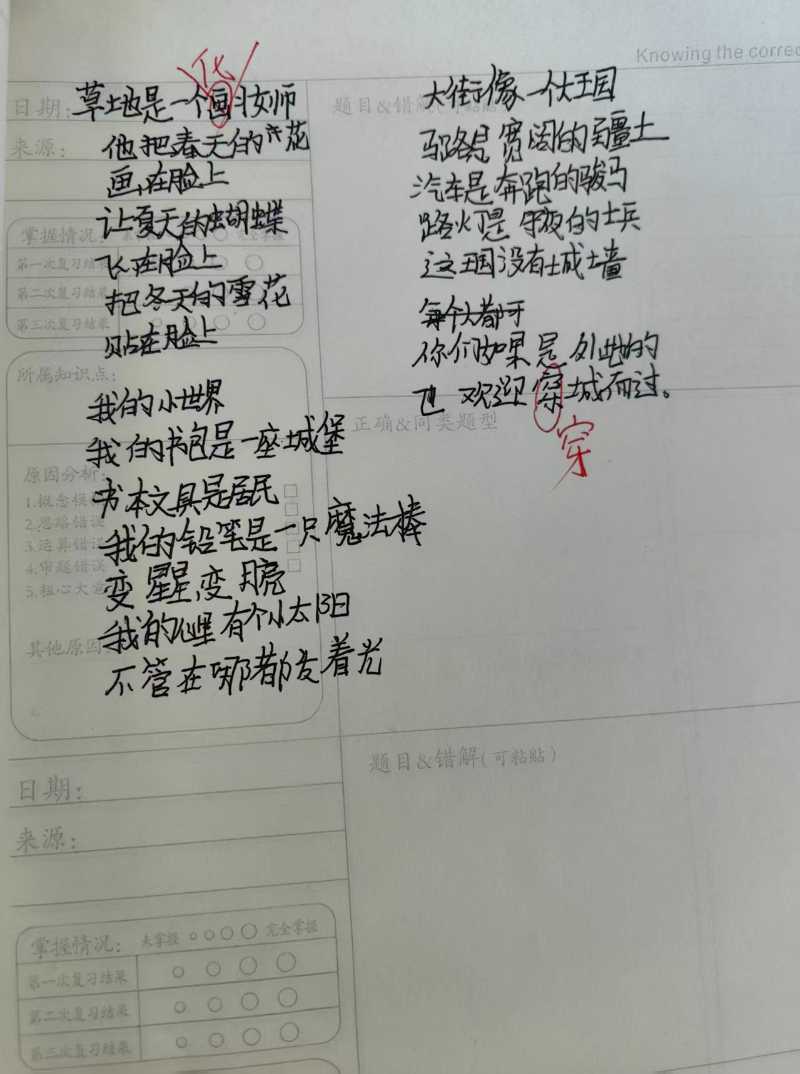 Knowing the correc
日期:
来源:
掌握情况
第一次复习结果
第二次复习结果
第三次复习结果
所属知识点:
原因分析:
1.概念模
2.思路错误
3.运算错误
4.审题错误
5.粗心大意
其他原因
化
草地是一个画妆师
他把春天的花
画在脸上
让夏天的蝴蝶
飞在脸上
把冬天的雪花
贴在脸上
我的小世界
我的书包是一座城堡
书本文具是居民
我的铅笔是一只魔法棒
变星星,变月亮
我的心里有个小太阳
不管在哪都发着光
题目&错解(可粘贴)
大街像一个大王国
马路是宽阔的疆土
汽车是奔跑的骏马
路灯是守夜的士兵
这王国没有城墙
你们如果是外地的
也欢迎穿城而过。
穿
正确&同类题型
日期:
来源:
掌握情况: 未掌握 完全掌握
第一次复习结果
第二次复习结果
第三次复习结果
题目&错解(可粘贴)